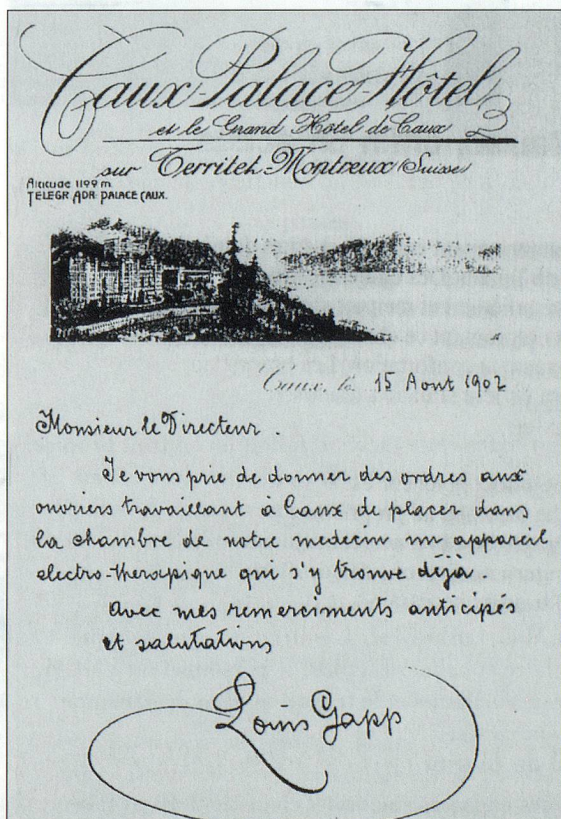 Caux-Palace-Hôtel
et le Grand Hôtel de Caux
sur Territet-Montreux (Suisse)
Altitude 1199 m.
TELEGR. ADR. PALACE CAUX.
Caux, le 15 Aout 1902
Monsieur le Directeur.
Je vous prie de donner des ordres aux
ouvriers travaillant à Caux de placer dans
la chambre de notre medecin un appareil
electro-therapique qui s'y trouve déjà.
Avec mes remerciments anticipés
et salutations
Louis Gapp